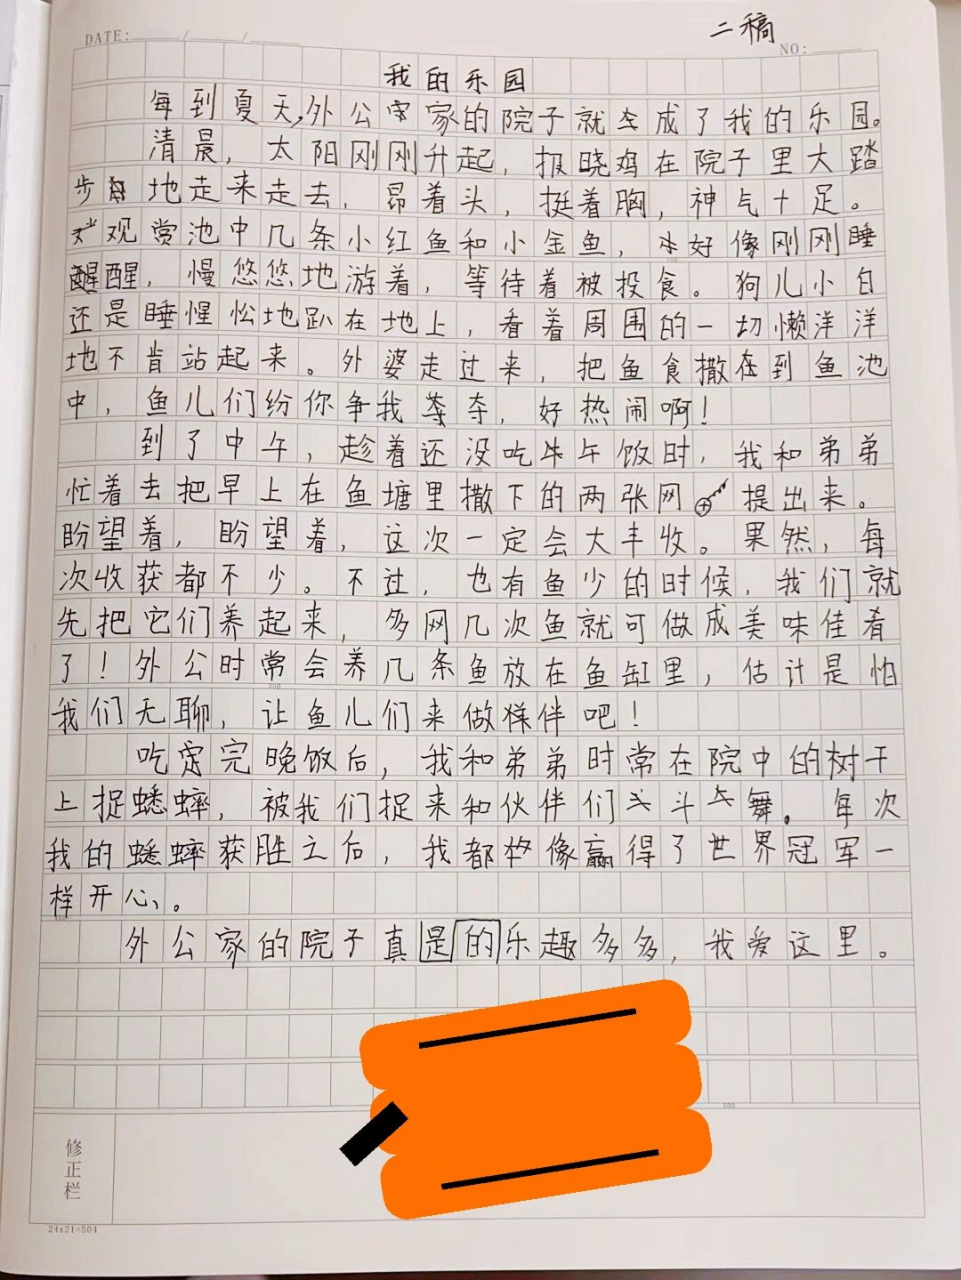 二稿
DATE: / /
NO:
我的乐园
每到夏天,外公家的院子就成了我的乐园。
清晨，太阳刚刚升起，报晓鸡在院子里大踏
步地走来走去，昂着头，挺着胸，神气十足。
观赏池中几条小红鱼和小金鱼，好像刚刚睡
醒醒，慢悠悠地游着，等待着被投食。狗儿小白
还是睡惺忪地趴在地上，看着周围的一切懒洋洋
地不肯站起来。外婆走过来，把鱼食撒到鱼池
中，鱼儿们纷你争我夺，好热闹啊！
到了中午，趁着还没吃午饭时，我和弟弟
忙着去把早上在鱼塘里撒下的两张网提出来。
盼望着，盼望着，这次一定会大丰收。果然，每
次收获都不少。不过，也有鱼少的时候，我们就
先把它们养起来，多网几次鱼就可做成美味佳肴
了！外公时常会养几条鱼放在鱼缸里，估计是怕
我们无聊，让鱼儿们来做伴吧！
吃完晚饭后，我和弟弟时常在院中的树干
上捉蟋蟀，被我们捉来和伙伴们斗舞。每次
我的蟋蟀获胜之后，我都像赢得了世界冠军一
样开心。
外公家的院子真是的乐趣多多，我爱这里。
修正栏
24x21=504